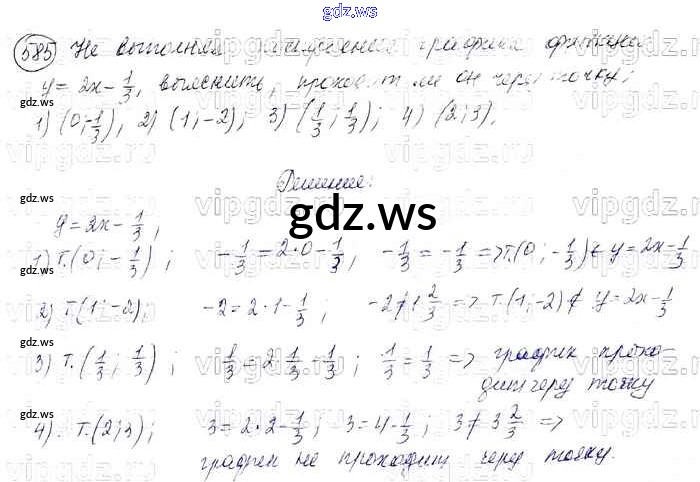 gdz.ws
585 Не выполняя построения графика функции
y = 2x - 1/3, выяснить, проходит ли он через точку:
1) (0; -1/3); 2) (1; -2); 3) (1/3; 1/3); 4) (2; 3).
Решение:
gdz.ws
y = 2x - 1/3;
1) т.(0; -1/3); -1/3 = 2·0 - 1/3; -1/3 = -1/3 => т.(0; -1/3) ∈ y = 2x - 1/3
2) т.(1; -2); -2 = 2·1 - 1/3; -2 ≠ 1 2/3 => т.(1; -2) ∉ y = 2x - 1/3
3) т.(1/3; 1/3); 1/3 = 2·1/3 - 1/3; 1/3 = 1/3 => график прохо-
дит через точку
4). т.(2; 3); 3 = 2·2 - 1/3; 3 = 4 - 1/3; 3 ≠ 3 2/3 =>
график не проходит через точку.